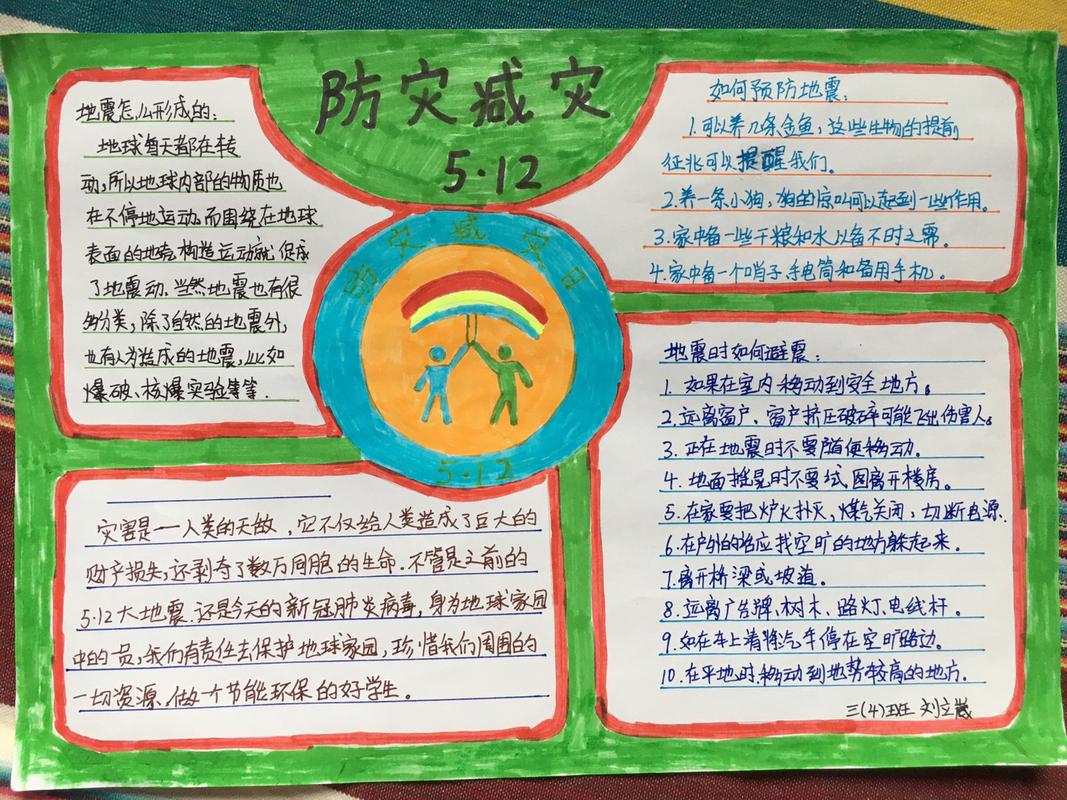 防灾减灾
5·12
地震怎么形成的：
地球每天都在转
动，所以地球内部的物质也
在不停地运动，而围绕在地球
表面的地壳构造运动就促成
了地震动．当然地震也有很
多分类，除了自然的地震外，
也有人为造成的地震，比如
爆破、核爆实验等等．
如何预防地震：
1.可以养几条金鱼，这些生物的提前
征兆可以提醒我们．
2.养一条小狗，狗的惊叫可以起到一些作用。
3.家中备一些干粮和水以备不时之需．
4.家中备一个哨子手电筒和备用手机．
防灾减灾日
5·12
地震时如何避震：
1．如果在室内移动到安全地方。
2．远离窗户、窗户挤压破碎可能飞出伤害人。
3．正在地震时不要随便移动．
4．地面摇晃时不要试图离开楼房。
5．在家要把炉火扑灭，煤气关闭，切断电源．
6．在户外的话应找空旷的地方躲起来．
7．离开桥梁或坡道．
8．远离广告牌、树木、路灯、电线杆．
9．如在车上请将汽车停在空旷路边．
10．在平地时移动到地势较高的地方．
三(4)班 刘立
灾害是一人类的天敌，它不仅给人类造成了巨大的
财产损失，还剥夺了数万同胞的生命．不管是之前的
5.12大地震．还是今天的新冠肺炎病毒，身为地球家园
中的一员，我们有责任去保护地球家园，珍惜我们周围的
一切资源．做一个节能环保的好学生．